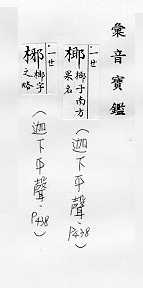 彙音寶鑑
一世
椰 椰子南方
果名
(迦下平聲, P438)
一世
椰字
之略
(迦下平聲, P438)